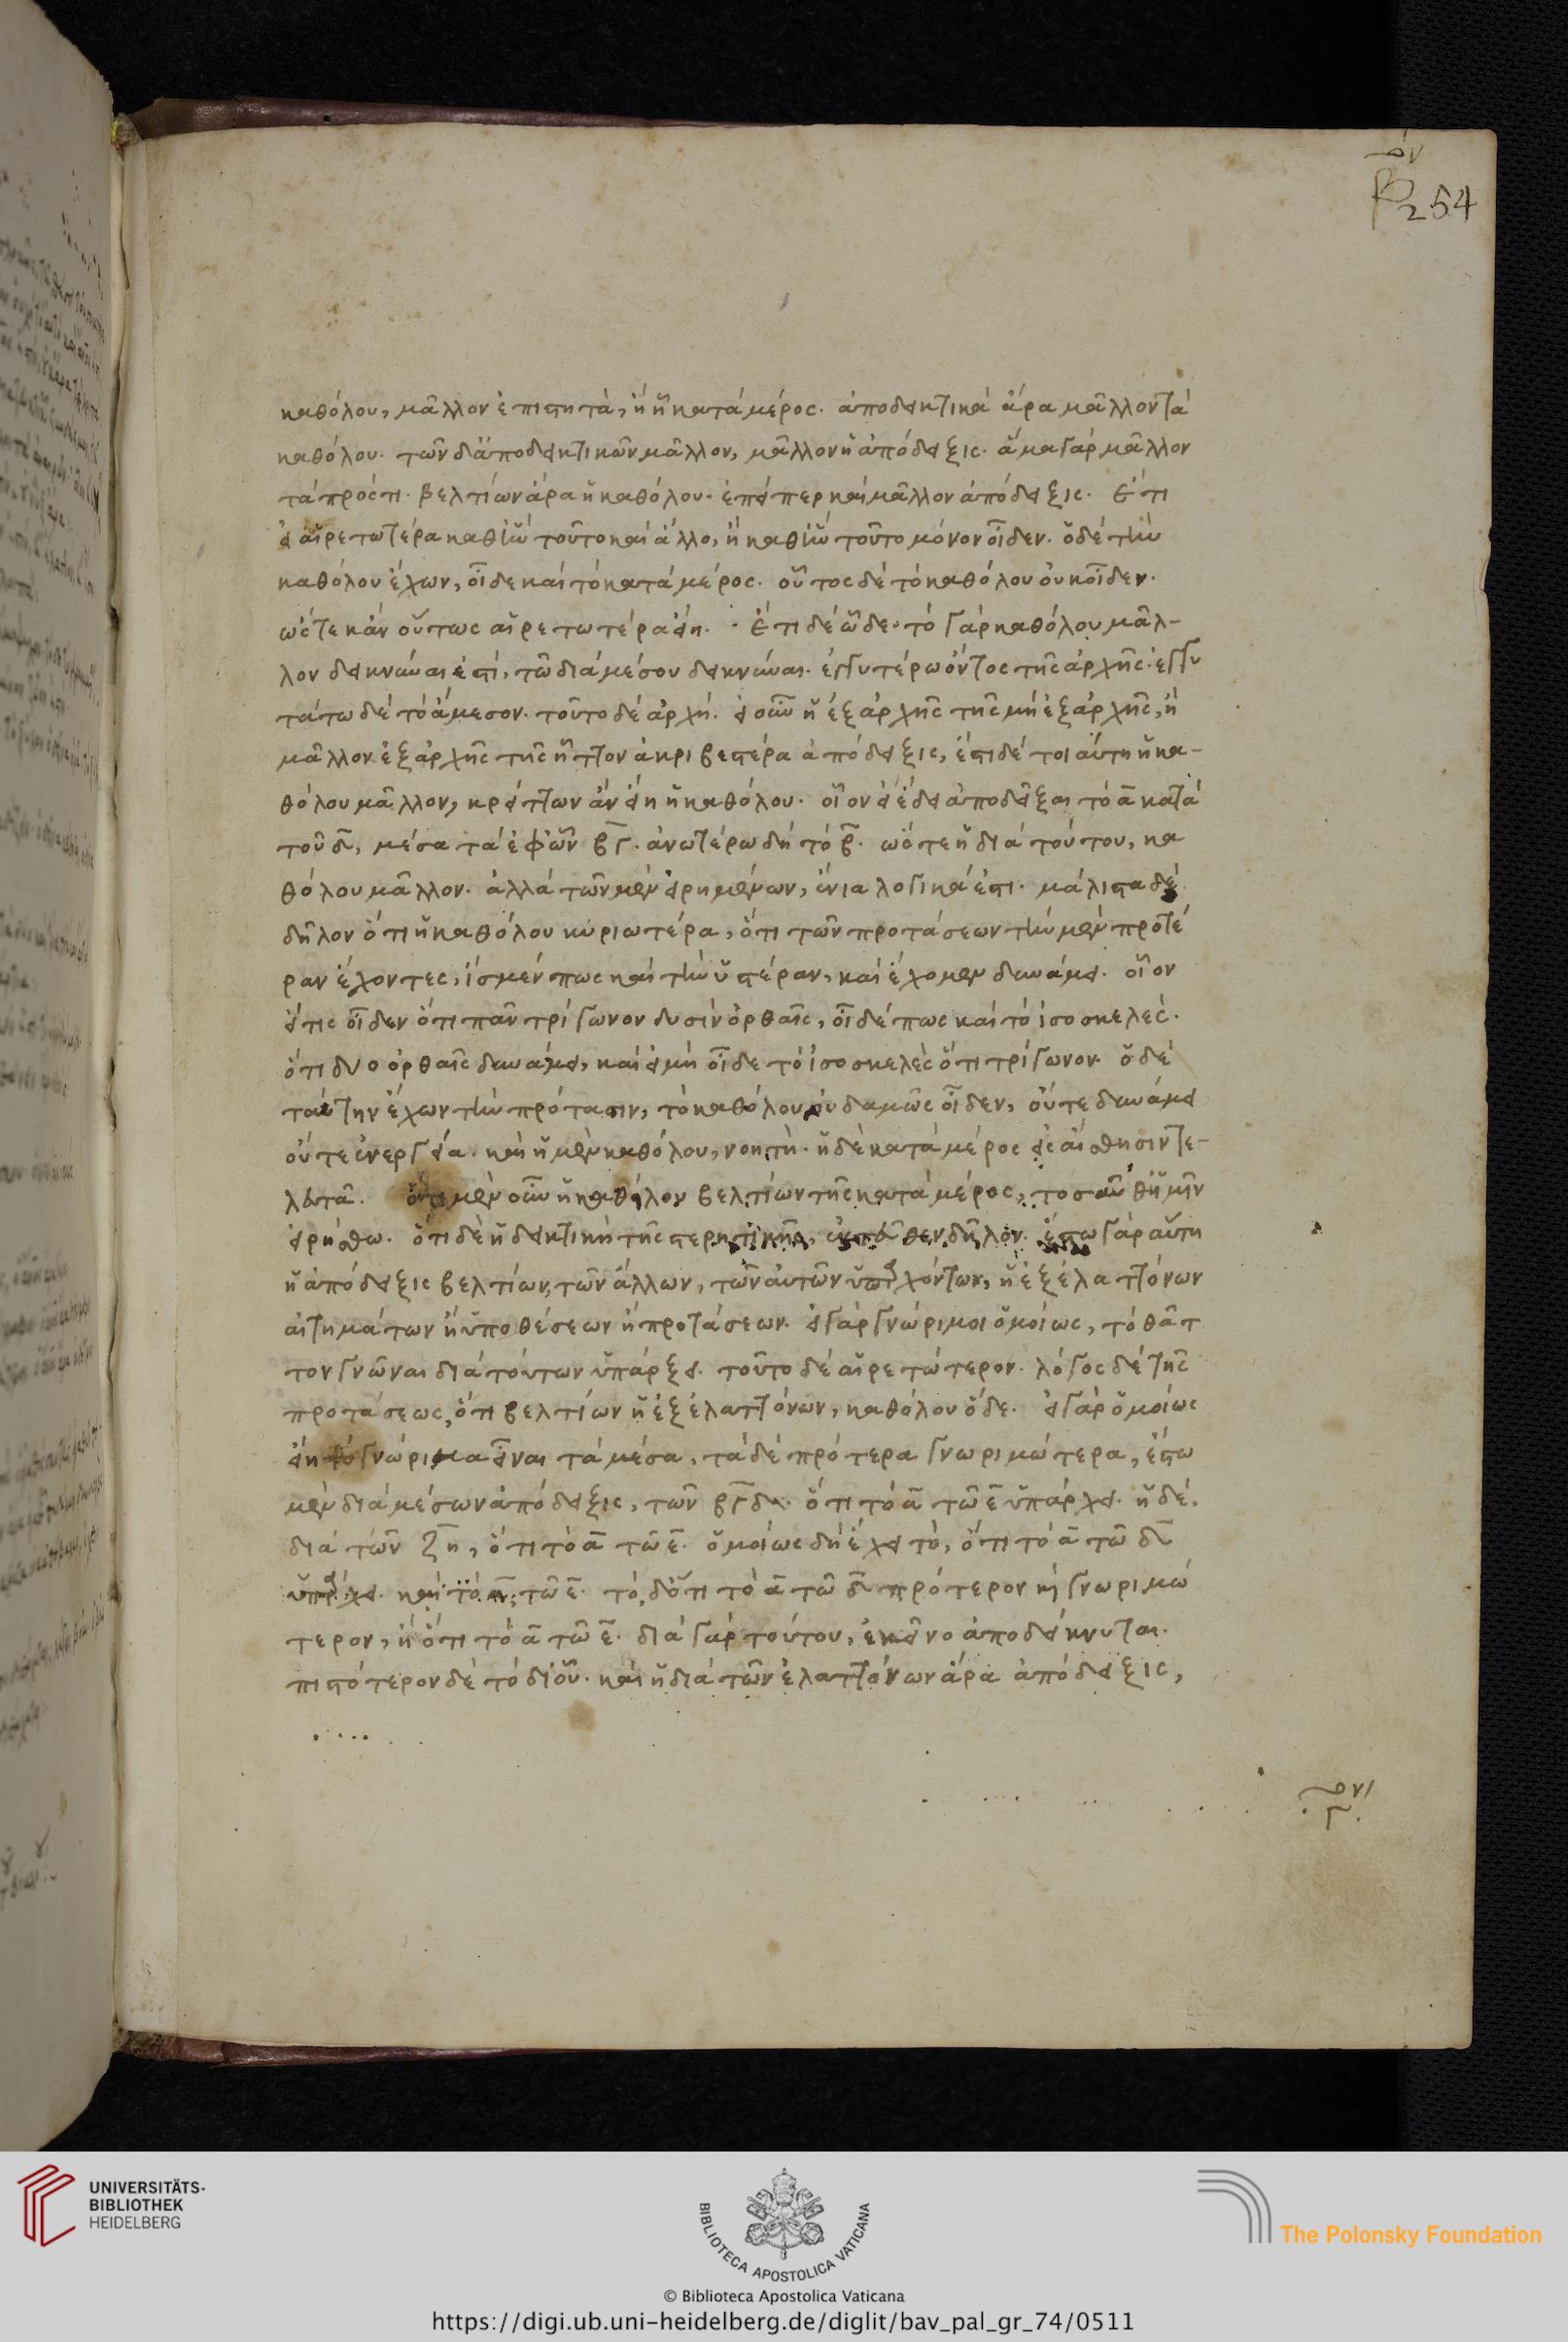 254
καθόλου, μᾶλλον ἐπιστητὰ, ἢ ᾗ κατὰ μέρος. ἀποδεικτικὰ ἄρα μᾶλλον τὰ
καθόλου. τῶν δ' ἀποδεικτικῶν μᾶλλον, μᾶλλον ἡ ἀπόδειξις. ἅμα γὰρ μᾶλλον
τὰ πρός τι. βελτίων ἄρα ἡ καθόλου. ἐπείπερ καὶ μᾶλλον ἀπόδειξις. Ἔτι
εἰ αἱρετωτέρα καθ' ἣν τοῦτο καὶ ἄλλο, ἢ καθ' ἣν τοῦτο μόνον οἶδεν. ὁ δὲ τὴν
καθόλου ἔχων, οἶδε καὶ τὸ κατὰ μέρος. οὗτος δὲ τὸ καθόλου οὐκ οἶδεν.
ὥστε κἂν οὕτως αἱρετωτέρα εἴη. Ἔτι δὲ ὧδε. τὸ γὰρ καθόλου μᾶλ-
λον δεικνύναι ἐστὶ, τῶ διὰ μέσου δεικνύναι. ἐγγυτέρω ὄντος τῆς ἀρχῆς. ἐγγυ
τάτω δὲ τὸ ἄμεσον. τοῦτο δὲ ἀρχή. εἰ οὖν ἡ ἐξ ἀρχῆς τῆς μὴ ἐξ ἀρχῆς, ἡ
μᾶλλον ἐξ ἀρχῆς τῆς ἧττον ἀκριβεστέρα ἀπόδειξις, ἔστι δὲ τοιαύτη ἡ κα-
θόλου μᾶλλον, κρείττων ἂν εἴη ἡ καθόλου. οἷον εἰ ἔδει ἀποδεῖξαι τὸ α κατὰ
τοῦ δ, μέσα τὰ ἐφ' ὧν β γ. ἀνωτέρω δὴ τὸ β. ὥστε ἡ διὰ τούτου, κα
θόλου μᾶλλον. ἀλλὰ τῶν μὲν εἰρημένων, ἔνια λογικά ἐστι. μάλιστα δὲ
δῆλον ὅτι ἡ καθόλου κυριωτέρα, ὅτι τῶν προτάσεων τὴν μὲν προτέ
ραν ἔχοντες, ἴσμέν πως καὶ τὴν ὑστέραν, καὶ ἔχομεν δυνάμει. οἷον
εἴ τις οἶδεν ὅτι πᾶν τρίγωνον δυσὶν ὀρθαῖς, οἶδέ πως καὶ τὸ ἰσοσκελὲς.
ὅτι δυο ὀρθαῖς δυνάμει, καὶ εἰ μὴ οἶδε τὸ ἰσοσκελὲς ὅτι τρίγωνον. ὁ δὲ
ταύτην ἔχων τὴν πρότασιν, τὸ καθόλου οὐδαμῶς οἶδεν, οὔτε δυνάμει
οὔτε ἐνεργεία. καὶ ἡ μὲν καθόλου, νοητὴ. ἡ δὲ κατὰ μέρος εἰς αἴσθησιν τε-
λευτᾶ. ὅτι μὲν οὖν ἡ καθόλου βελτίων τῆς κατὰ μέρος, τοσαῦθ' ἡμῖν
εἰρήσθω. ὅτι δὲ ἡ δεικτικὴ τῆς στερητικῆς, ἐντεῦθεν δῆλον. ἔστω γὰρ αὕτη
ἡ ἀπόδειξις βελτίων, τῶν ἄλλων, τῶν αὐτῶν ὑπαρχόντων, ἡ ἐξ ἐλαττόνων
αἰτημάτων ἢ ὑποθέσεων ἢ προτάσεων. εἰ γὰρ γνώριμοι ὁμοίως, τὸ θᾶτ
τον γνῶναι διὰ τούτων ὑπάρξει. τοῦτο δὲ αἱρετώτερον. λόγος δὲ τῆς
προτάσεως, ὅτι βελτίων ἡ ἐξ ἐλαττόνων, καθόλου ὅδε. εἰ γὰρ ὁμοίως
εἴη τὸ γνώριμα εἶναι τὰ μέσα, τὰ δὲ πρότερα γνωριμώτερα, ἔστω
μὲν διὰ μέσων ἀπόδειξις, τῶν β γ δ. ὅτι τὸ α τῶ ε ὑπάρχει. ἡ δὲ,
διὰ τῶν ζ η, ὅτι τὸ α τῶ ε. ὁμοίως δὴ ἔχει τὸ, ὅτι τὸ α τῶ δ
ὑπάρχει. καὶ τὸ α, τῶ ε. τὸ, δ' ὅτι τὸ α τῶ δ πρότερον καὶ γνωριμώ
τερον, ἢ ὅτι τὸ α τῶ ε. διὰ γὰρ τούτου, ἐκεῖνο ἀποδείκνυται.
πιστότερον δὲ τὸ δι' οὗ. καὶ ἡ διὰ τῶν ἐλαττόνων ἄρα ἀπόδειξις,
UNIVERSITÄTS-
BIBLIOTHEK
HEIDELBERG
BIBLIOTECA APOSTOLICA VATICANA
The Polonsky Foundation
© Biblioteca Apostolica Vaticana
https://digi.ub.uni-heidelberg.de/diglit/bav_pal_gr_74/0511